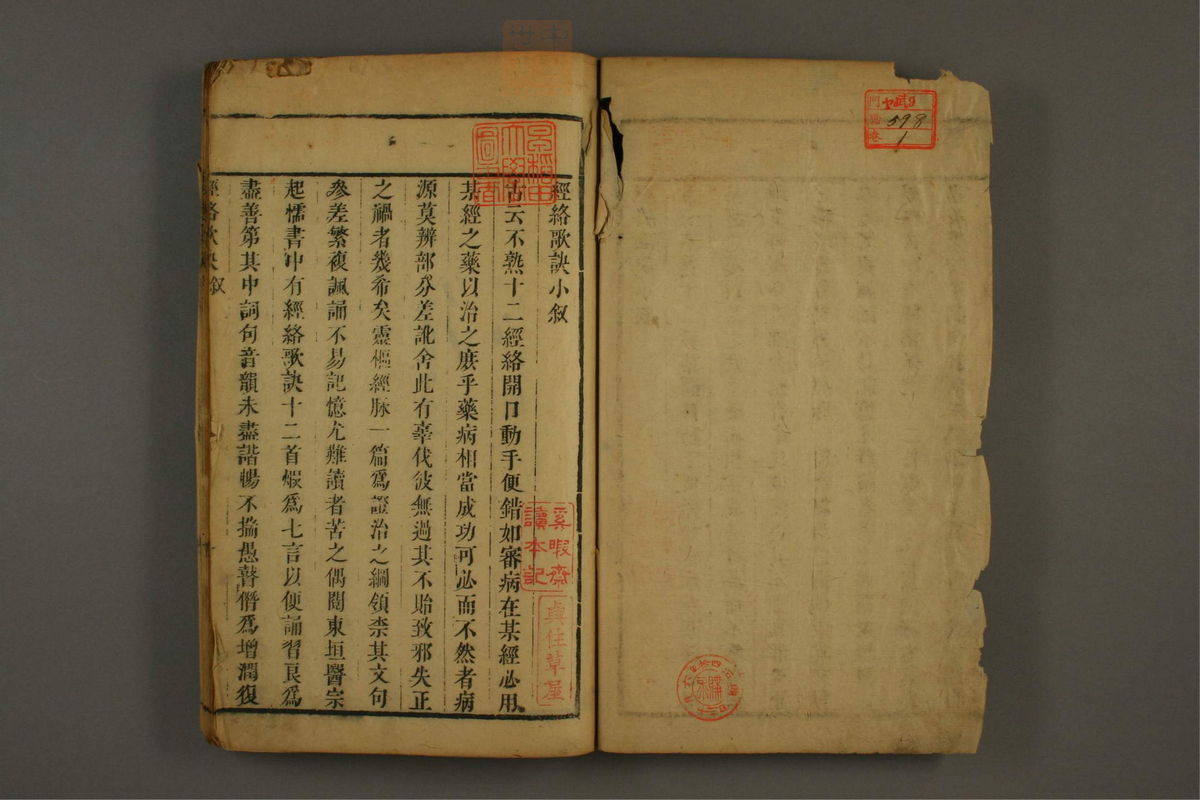 經絡歌訣小敘
古云不熟十二經絡開口動手便錯如審病在某經必用
某經之藥以治之庶乎藥病相當成功可必而不然者病
源莫辨部分差訛舍此有辜伐彼無過其不貽致邪失正
之禍者幾希矣靈樞經脉一篇爲證治之綱領柰其文句
參差繁複諷誦不易記憶尤難讀者苦之偶閱東垣醫宗
起懦書中有經絡歌訣十二首煅爲七言以便誦習良爲
盡善第其中詞句音韻未盡諧暢不揣愚瞽僭爲增潤復
經絡歌訣敘
早稻田大學圖書
奚暇齋讀本記
貞住草屋
門
號 598
卷 1